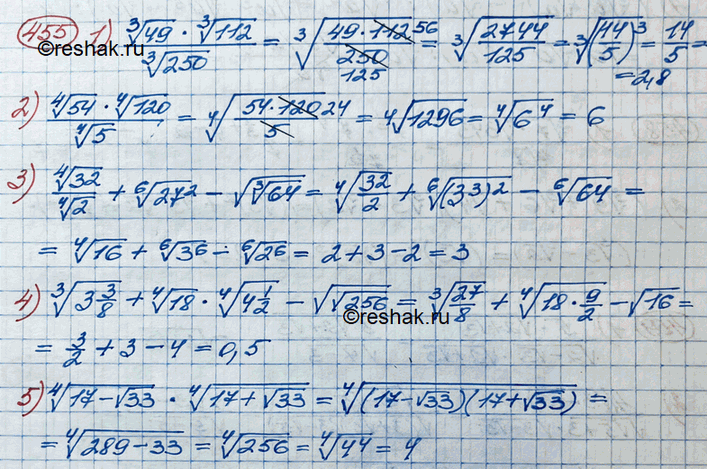 455 1) ∛49 · ∛112 / ∛250 = ∛(49 · 112 56 / 250 125) = ∛(2744/125) = ∛(14/5)³ = 14/5 =
= 2,8
©reshak.ru
2) ∜54 · ∜120 / ∜5 = ∜(54 · 120 24 / 5) = ∜1296 = ∜6⁴ = 6
3) ∜32 / ∜2 + ⁶√27² - √∛64 = ∜(32/2) + ⁶√(3³)² - ⁶√64 =
= ∜16 + ⁶√3⁶ - ⁶√2⁶ = 2 + 3 - 2 = 3
4) ∛(3 3/8) + ∜18 · ∜(4 1/2) - √√256 = ∛(27/8) + ∜(18 · 9/2) - √16 =
©reshak.ru
= 3/2 + 3 - 4 = 0,5
5) ∜(17 - √33) · ∜(17 + √33) = ∜((17 - √33)(17 + √33)) =
= ∜(289 - 33) = ∜256 = ∜4⁴ = 4